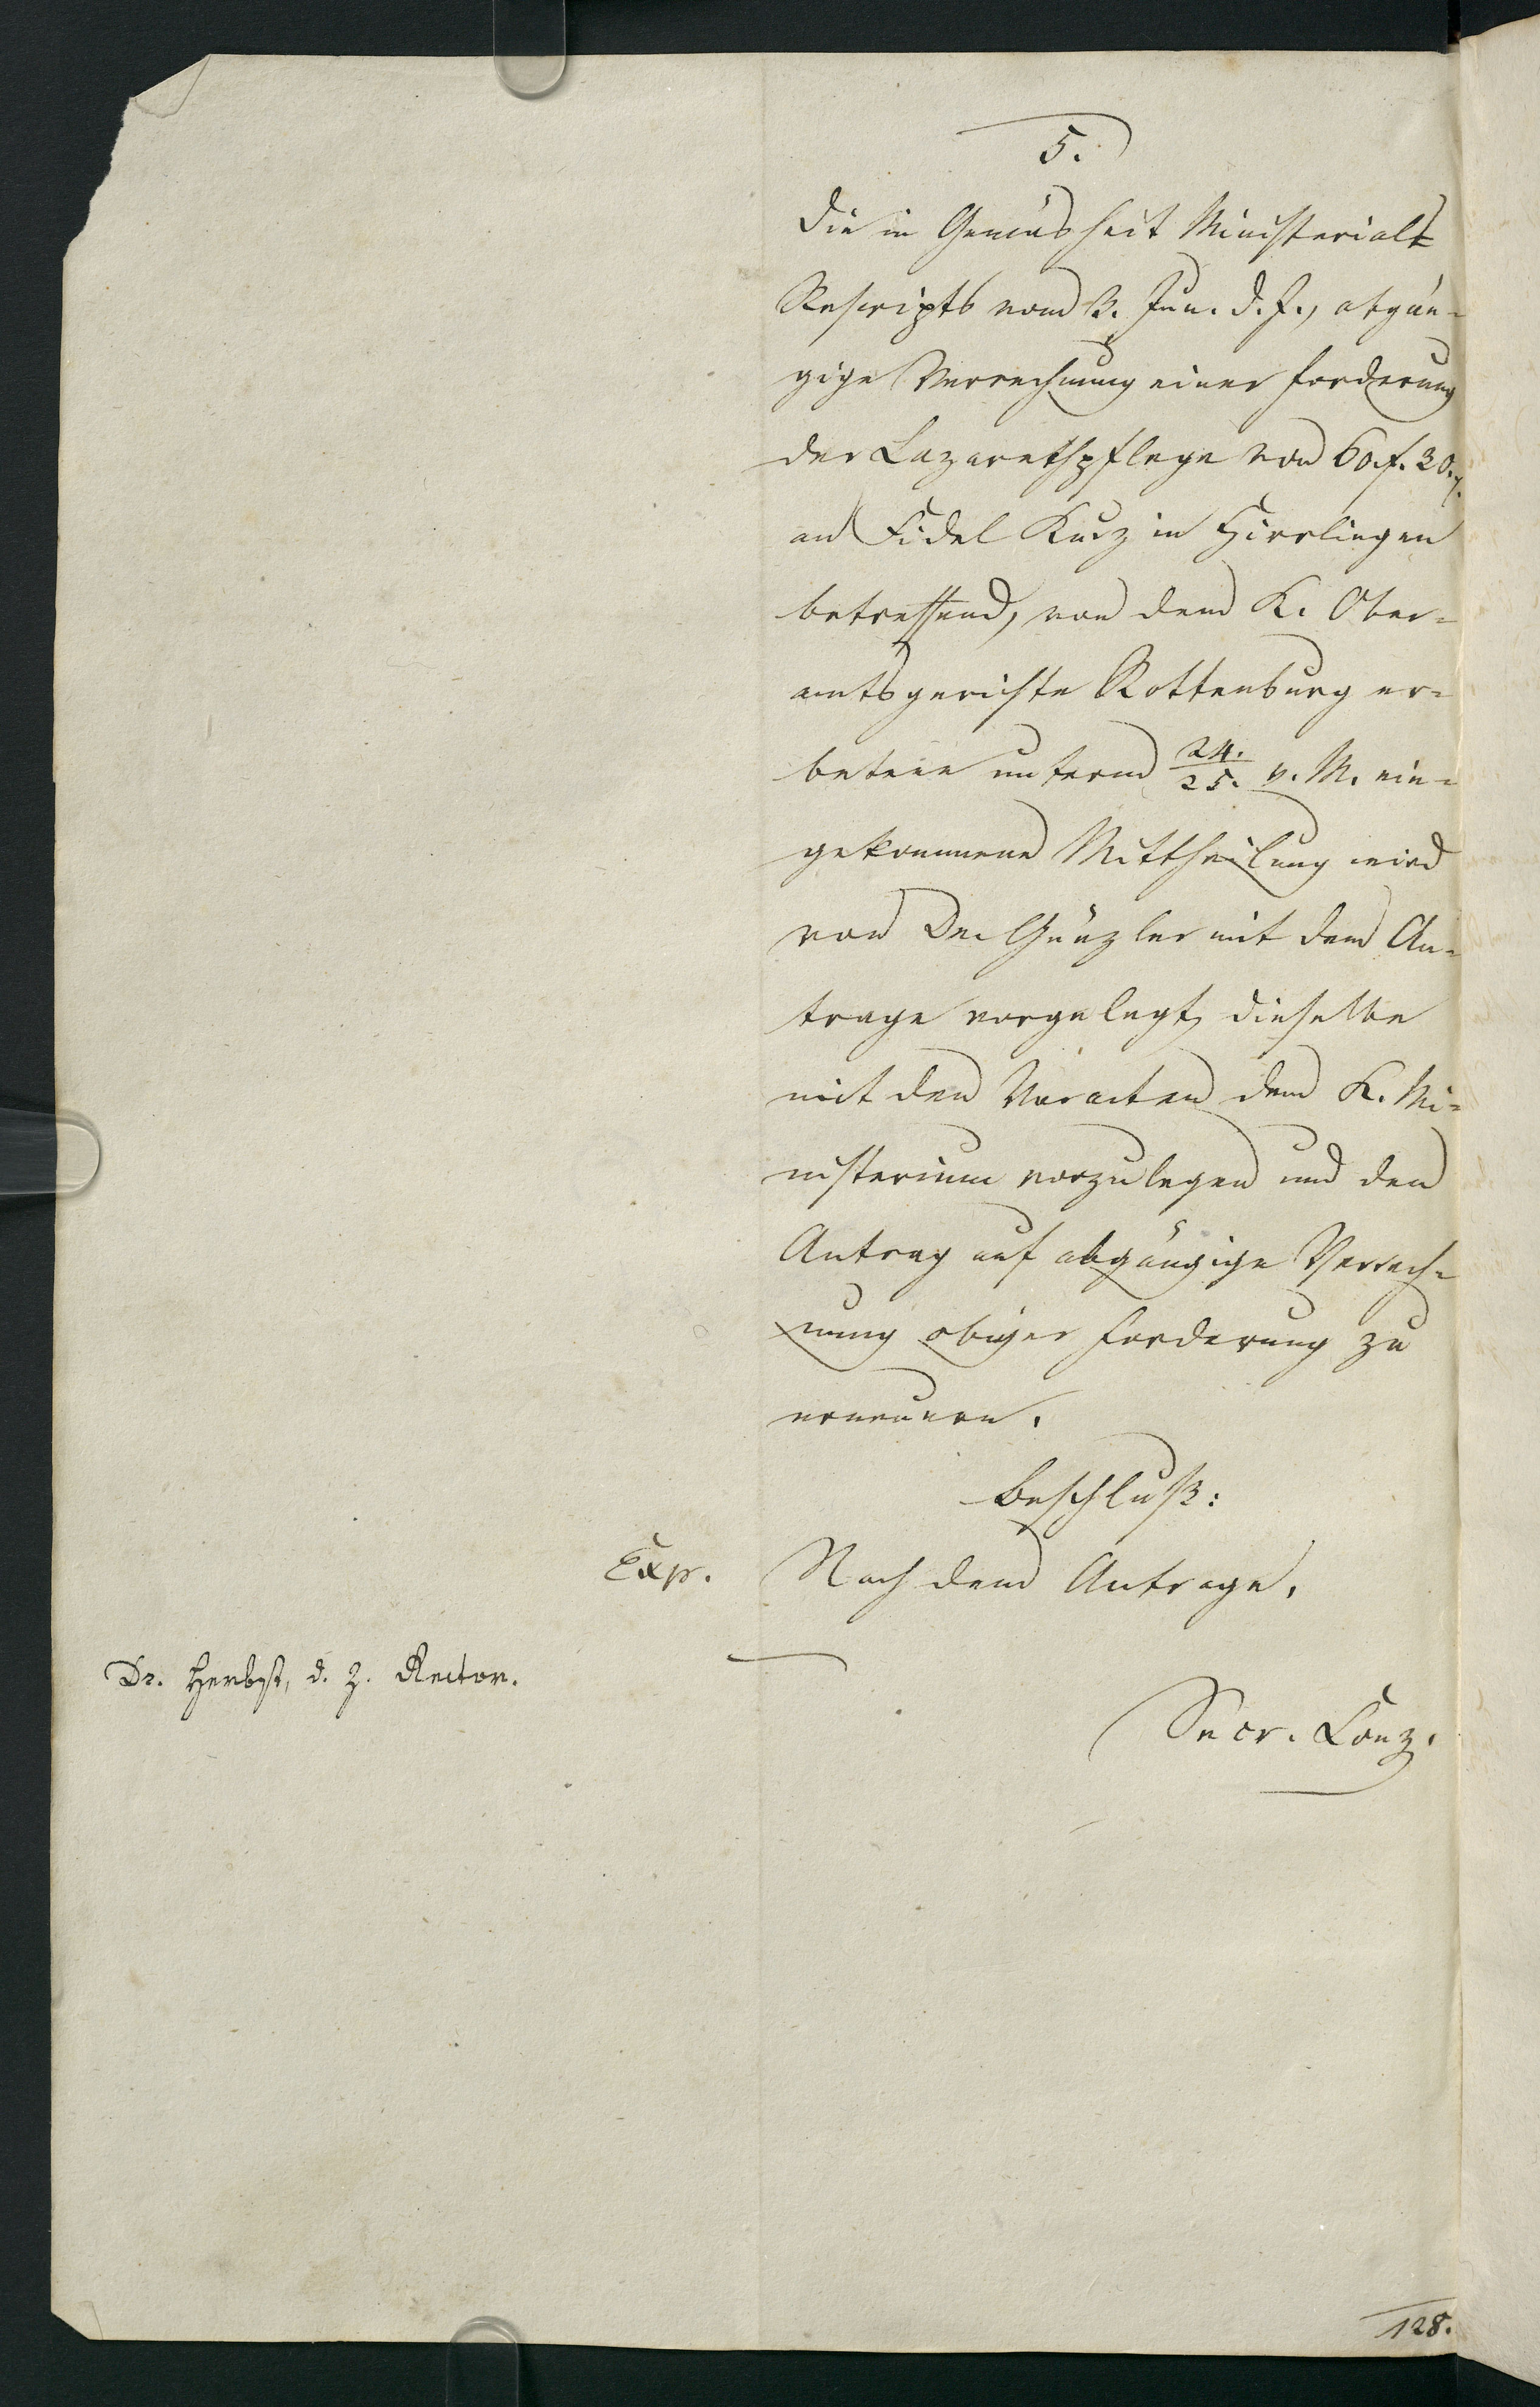 5.
Die in Gemäsheit Ministerial-
Rescripts vom 3. Jun. d. J., abgän-
gige Verrechnung einer Forderung
der Lazarethpflege von 60 f. 30.
an Fidel Kurz in Hirrlingen
betreffend, von dem K. Ober-
amtsgerichte Rottenburg er-
betene unterm 24./25. v. M. ein-
gekommene Mittheilung wird
von Dr. Gänzler mit dem An-
trage vorgelegt, dieselbe
mit den Voracten dem K. Mi-
nisterium vorzulegen und den
Antrag auf abgängige Verrech-
nung obiger Forderung zu
erneuern.
Beschluß:
Exp. Nach dem Antrage.
Dr. Herbst, d. Z. Rector.
Secr. Conz.
128.